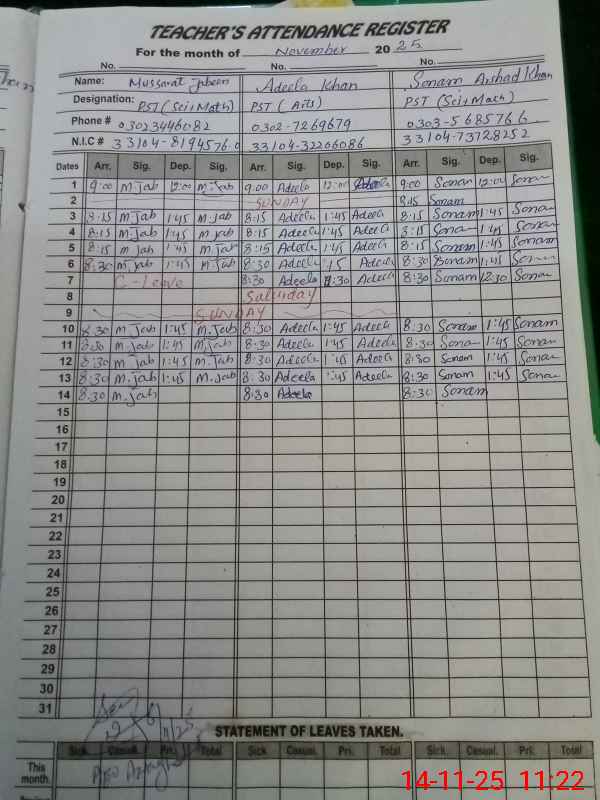 TEACHER'S ATTENDANCE REGISTER
For the month of November 2025
No. No. No.
Name: Mussarat Jabeen Adeela Khan Sonam Arshad Khan
Designation: PST (Sci & Math) PST (Arts) PST (Sci & Math)
Phone # 03023446082 0302-7269679 0303-5685766
N.I.C # 33104-8194576 0 33104-32206086 33104-7372825 2
Dates Arr. Sig. Dep. Sig. Arr. Sig. Dep. Sig. Arr. Sig. Dep. Sig.
1 9:00 M.Jab 12:00 M.Jab 9:00 Adeela 12:00 Adeela 9:00 Sonam 12:00 Sonam
2 SUNDAY 8:15 Sonam
3 8:15 M.Jab 1:45 M.Jab 8:15 Adeela 1:45 Adeela 8:15 Sonam 1:45 Sonam
4 8:15 M.Jab 1:45 M.Jab 8:15 Adeela 1:45 Adeela 8:15 Sonam 1:45 Sonam
5 8:15 M.Jab 1:45 M.Jab 8:15 Adeela 1:45 Adeela 8:15 Sonam 1:45 Sonam
6 8:30 M.Jab 1:45 M.Jab 8:30 Adeela Adeela 8:30 Sonam 1:45 Sonam
7 C-Leave 8:30 Adeela Adeela 8:30 Sonam 12:30 Sonam
8 Saturday
9 SUNDAY
10 8:30 M.Jab 1:45 M.Jab 8:30 Adeela 1:45 Adeela 8:30 Sonam 1:45 Sonam
11 8:30 M.Jab 1:45 M.Jab 8:30 Adeela 1:45 Adeela 8:30 Sonam 1:45 Sonam
12 8:30 M.Jab 1:45 M.Jab 8:30 Adeela 1:45 Adeela 8:30 Sonam 1:45 Sonam
13 8:30 M.Jab 1:45 M.Jab 8:30 Adeela 1:45 Adeela 8:30 Sonam 1:45 Sonam
14 8:30 M.Jab 8:30 Adeela 8:30 Sonam
15
16
17
18
19
20
21
22
23
24
25
26
27
28
29
30
31
STATEMENT OF LEAVES TAKEN.
Sick Casual. Pri. Total Sick Casual. Pri. Total Sick Casual. Pri. Total
This
month.
14-11-25 11:22